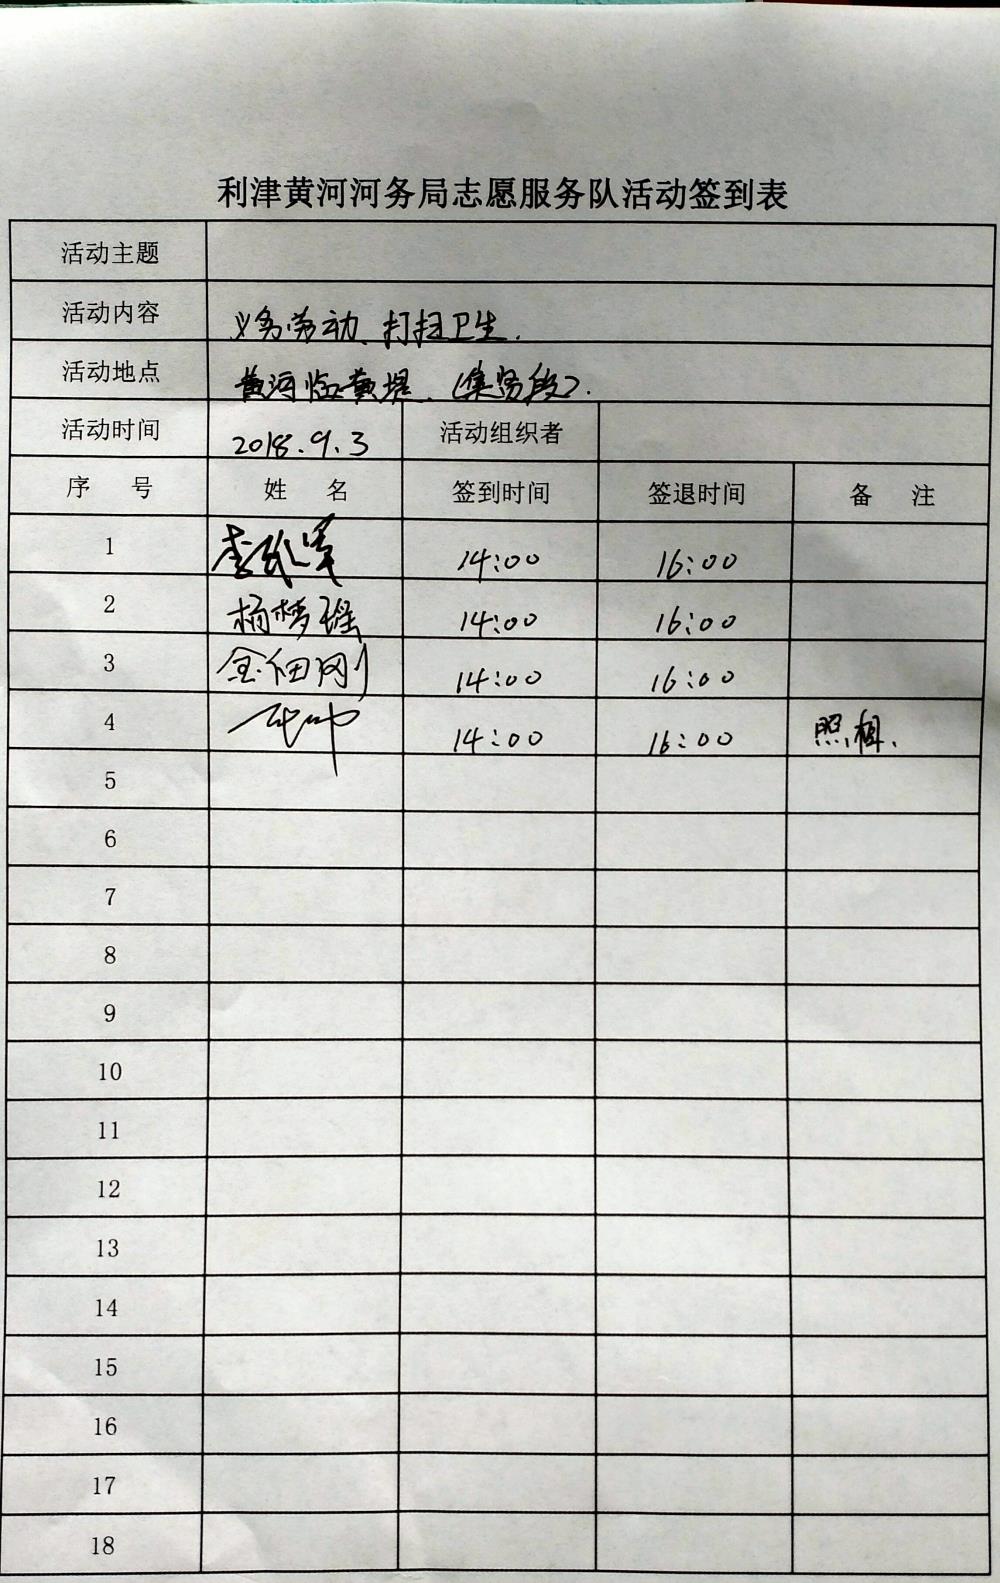 利津黄河河务局志愿服务队活动签到表
活动主题
活动内容 义务劳动、打扫卫生.
活动地点 黄河临黄堤.(集贤段).
活动时间 2018.9.3 活动组织者
序 号 姓 名 签到时间 签退时间 备 注
1 14:00 16:00
2 杨梦瑶 14:00 16:00
3 金佃刚 14:00 16:00
4 14:00 16:00 照相.
5
6
7
8
9
10
11
12
13
14
15
16
17
18